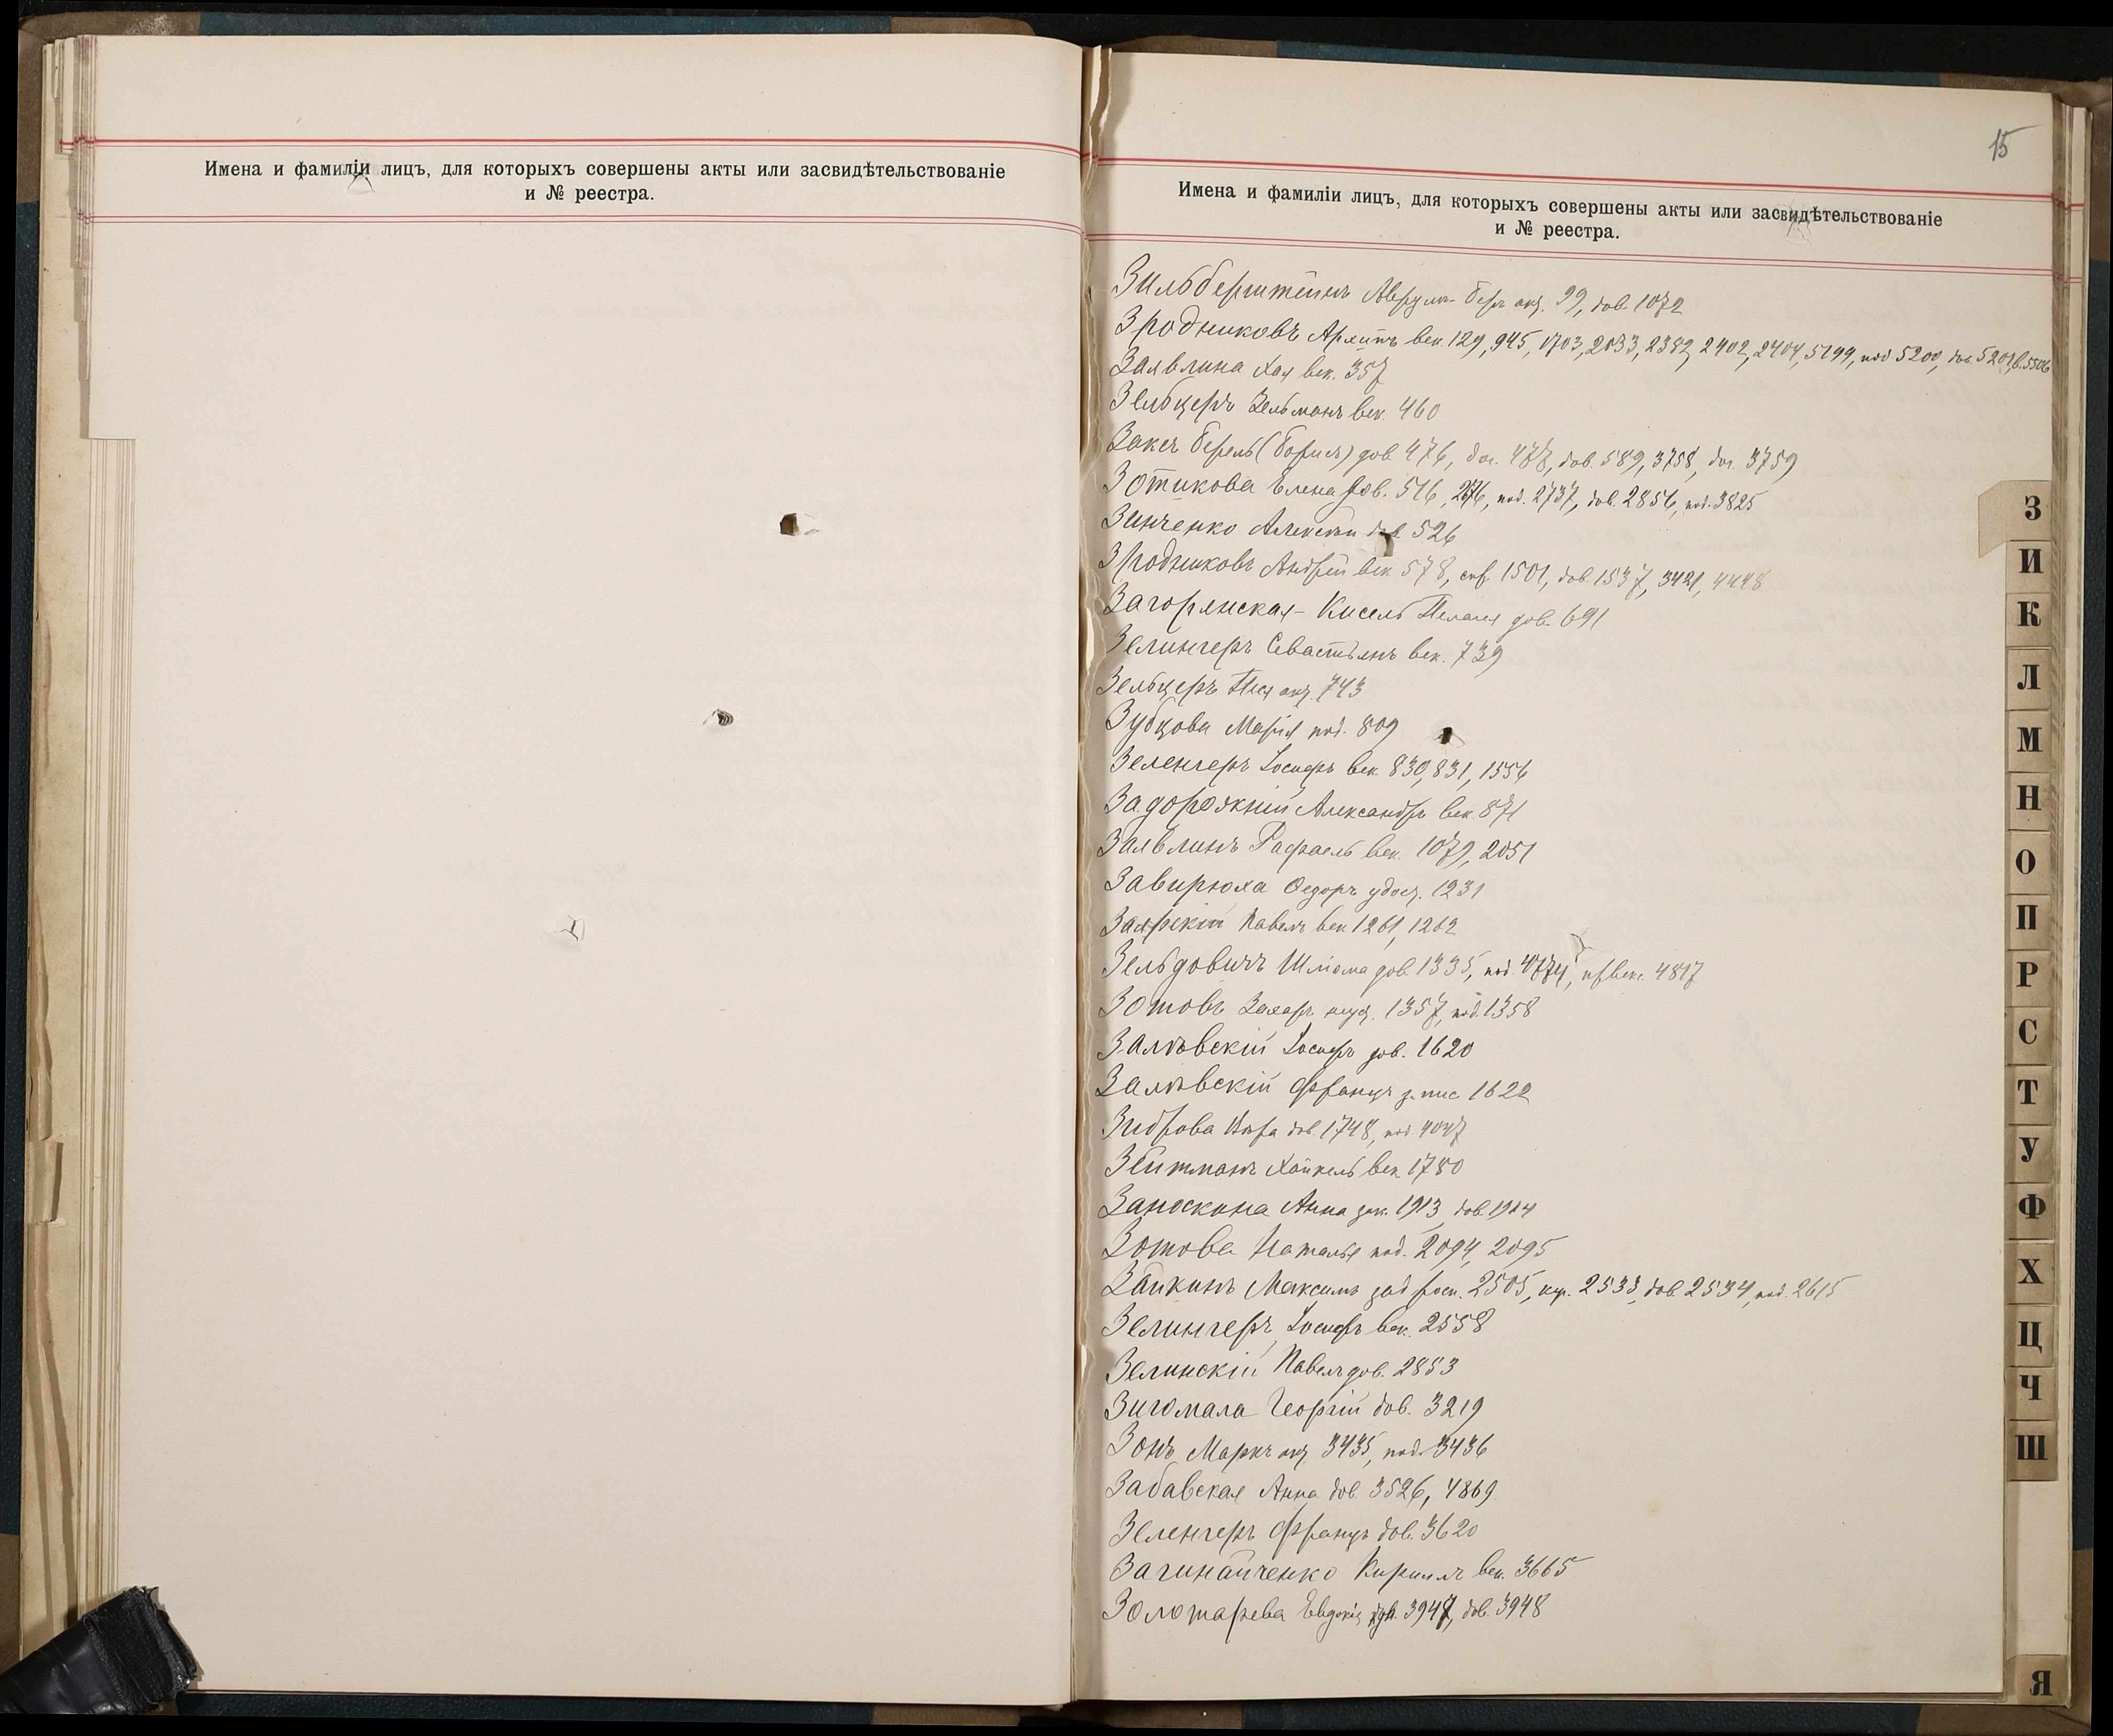 Имена и фамиліи лицъ, для которыхъ совершены акты или засвидѣтельствованіе
и № реестра.
15
Имена и фамиліи лицъ, для которыхъ совершены акты или засвидѣтельствованіе
и № реестра.
Зильберштейнъ Аврумъ-Беръ акц. 99, дов. 1072
Зродниковъ Архипъ век. 129, 945, 1703, 2033, 2382, 2402, 2404, 5199, под 5200, дов. 5201, в. 5506
Заявлина Хая век. 357
Зельцеръ Зельманъ век. 460
Заксъ Берель (Борисъ) дов. 476, дог. 477, дов. 589, 3758, дог. 3759
Зотикова Елена дов. 516, 2676, под. 2737, дов. 2856, под. 3825
Зинченко Алексѣй дов 526
Зродниковъ Андрей век 578, 1501, дов. 1537, 3421, 4448
Загорянская-Кисель Пелагея дов. 691
Зелингеръ Севастьянъ век. 739
Зельцеръ акц. 743
Зубцова Марія под. 809
Зеленгеръ Іосифъ век. 830, 831, 1556
Задорожній Александръ век. 871
Заявлинъ Рафаель век. 1079, 2051
Завирюха Ѳедоръ удост. 1231
Заярскій Павелъ век 1261, 1262
Зельдовичъ Шліома дов. 1335, под. 4774, 4817
Зотовъ Захаръ 1357, под. 1358
Залѣвскій Іосифъ дов. 1620
Залѣвскій Францъ з. пис 1622
Вѣра дов. 1748, под 4047
Зейтманъ Хайкель век 1780
Заноскина Анна 1913, дов. 1914
Зотова Наталья под. 2094, 2095
Зайкинъ Максимъ 2505, 2533, дов. 2534, под. 2615
Зелингеръ Іосифъ век. 2558
Зелинскій Павелъ дов. 2853
Зигомала Георгій дов. 3219
Зонъ Маркъ акц 3435, под. 3436
Забавская Анна дов. 3526, 4869
Зеленгеръ Францъ дов. 3620
Загинайченко Кириллъ век. 3665
Золотарева Евдокія 3947, дов. 3948
З
И
К
Л
М
Н
О
П
Р
С
Т
У
Ф
Х
Ц
Ч
Ш
Я